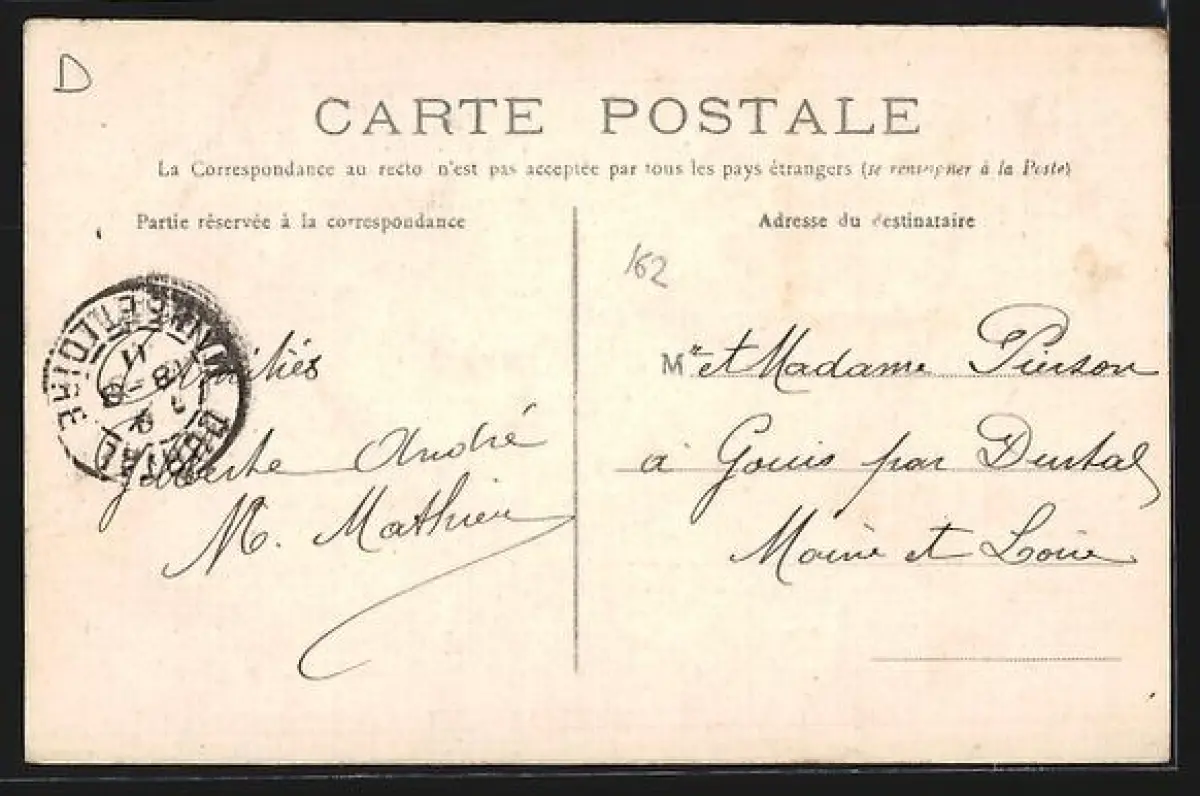 D
CARTE POSTALE
La Correspondance au recto n'est pas acceptée par tous les pays étrangers (se renseigner à la Poste)
Partie réservée à la correspondance
Adresse du destinataire
162
Amitiés
André
M. Mathieu
Mr et Madame Pierson
à Gouis par Durtal
Maine et Loire
DURTAL
MAINE-ET-LOIRE